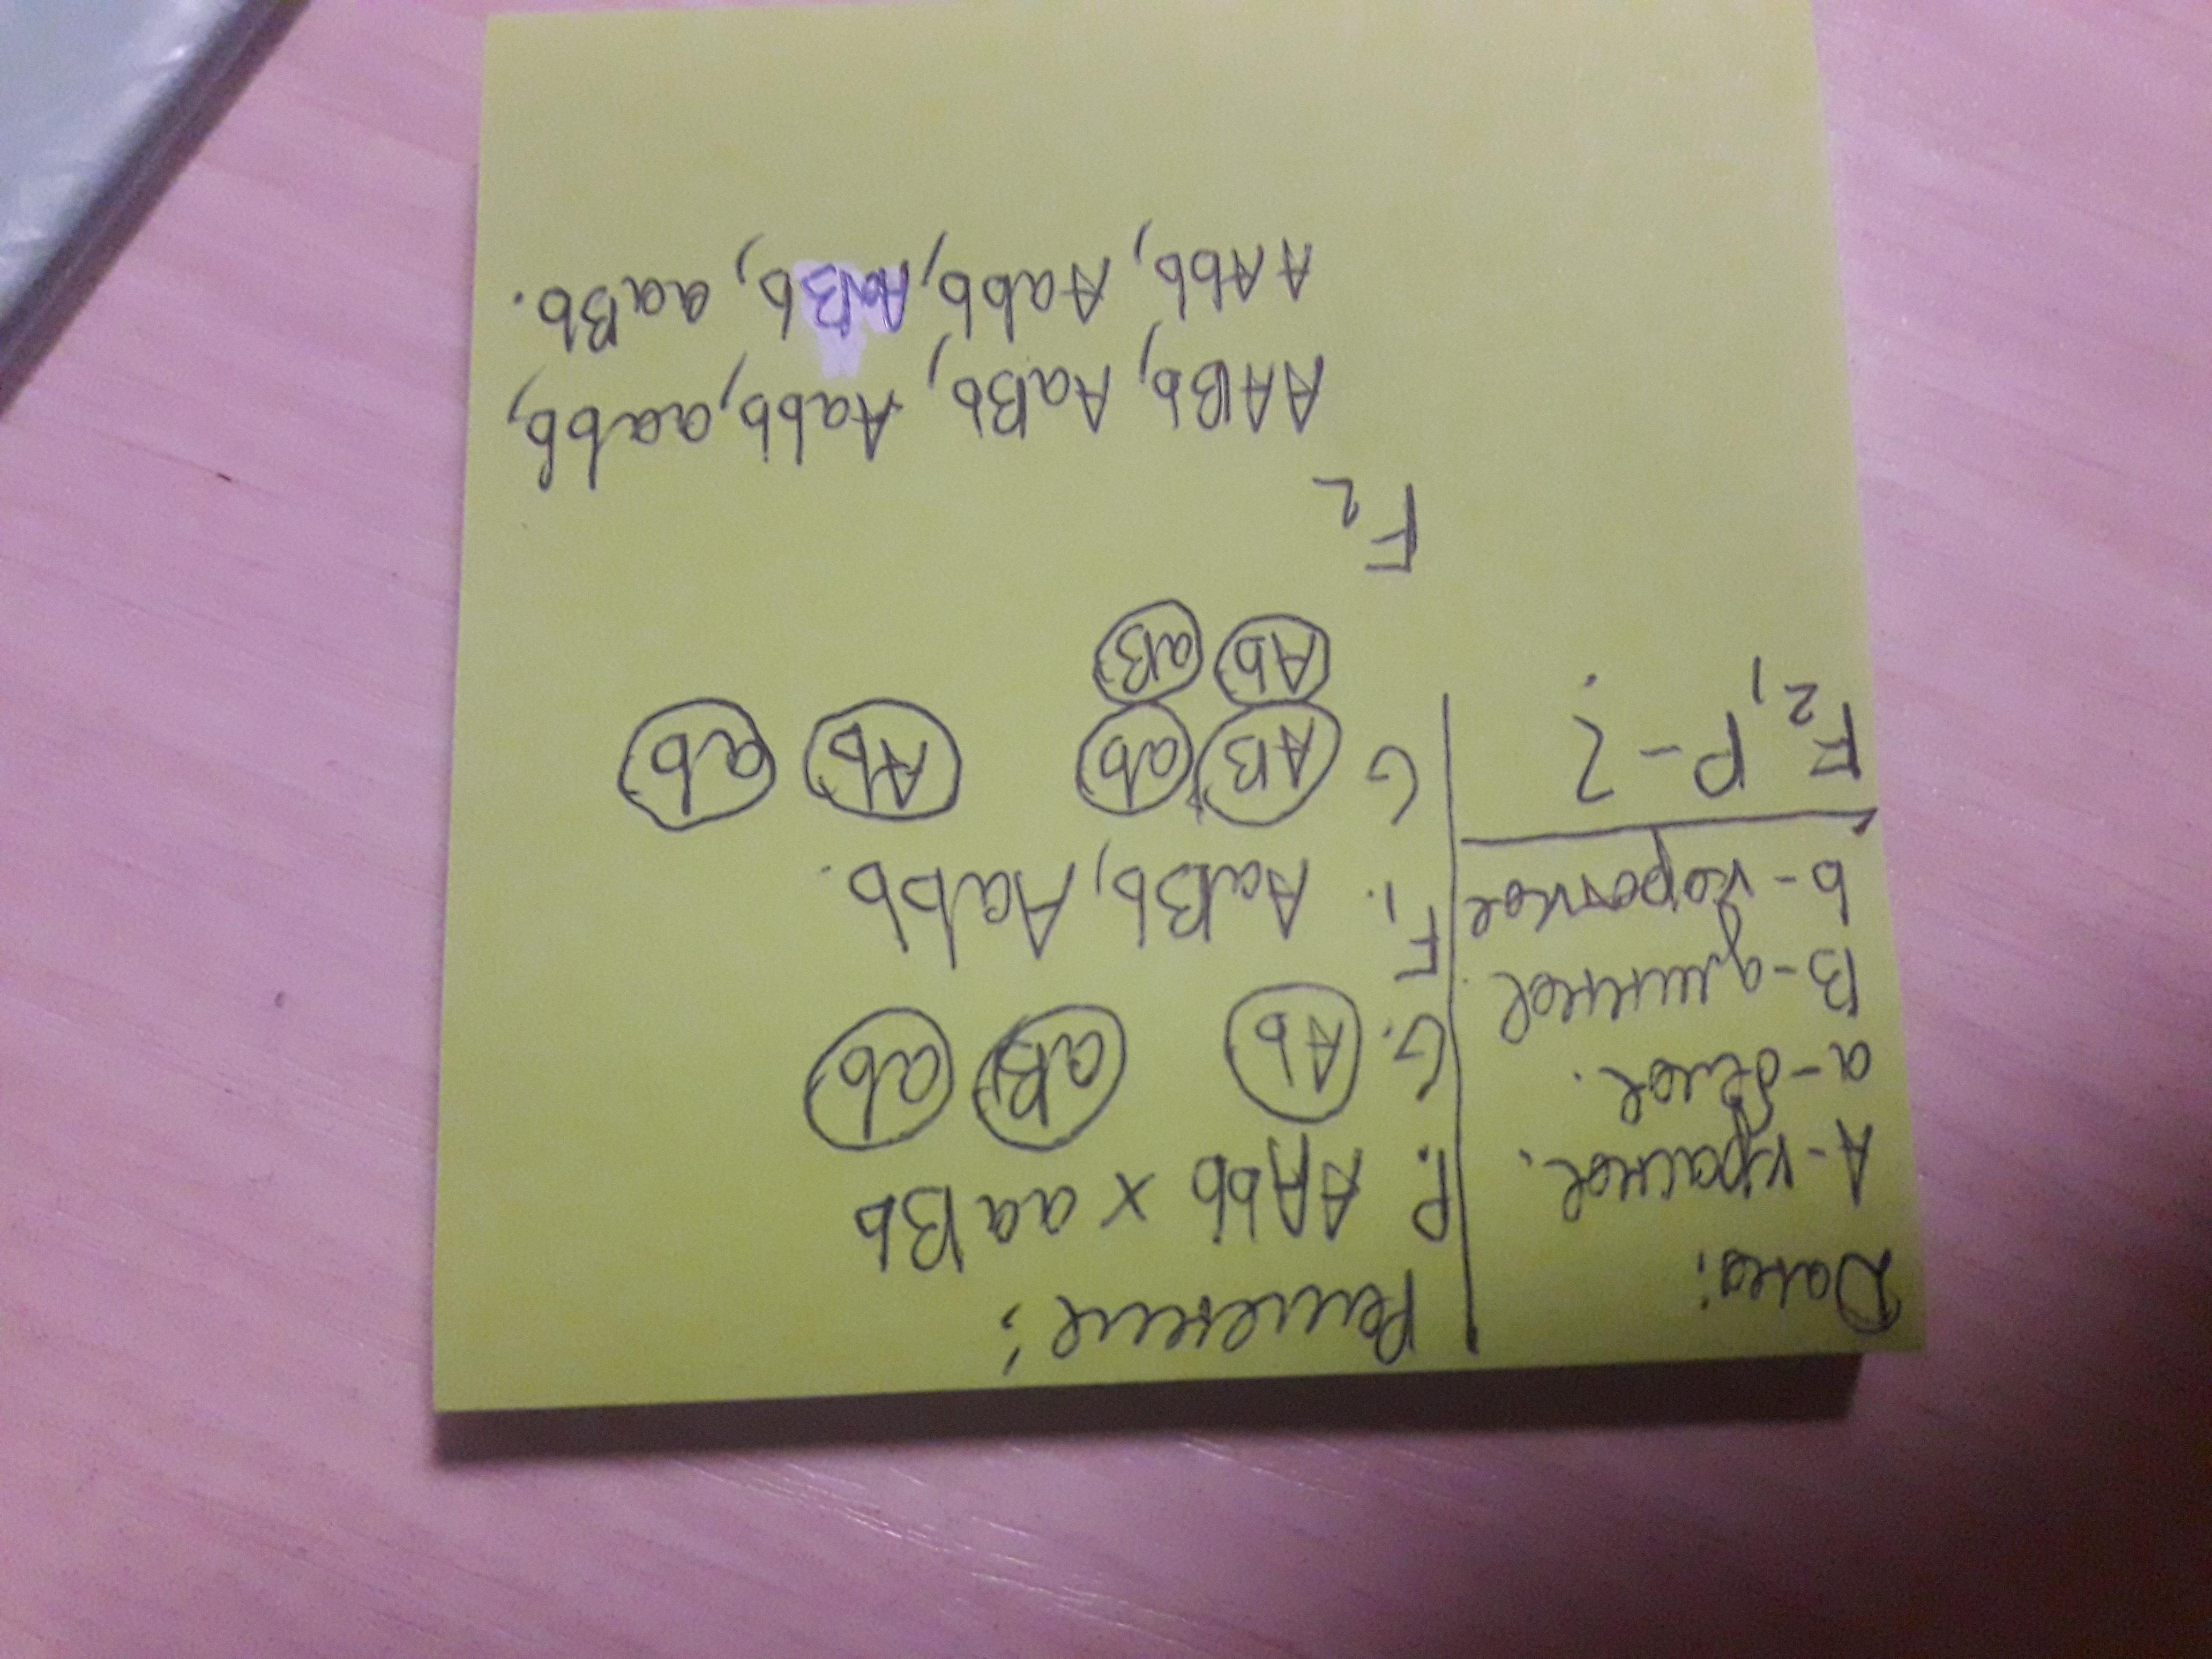 Дано:
А-красное.
а-белое.
В-длинное.
b-короткое
F₂, P-?
Решение:
P. AAbb × aaBb
G. Ab aB ab
F₁. AaBb, Aabb.
G AB ab Ab ab
Ab aB
F₂
AABb, AaBb, Aabb, aabb,
AAbb, Aabb, AaBb, aaBb.